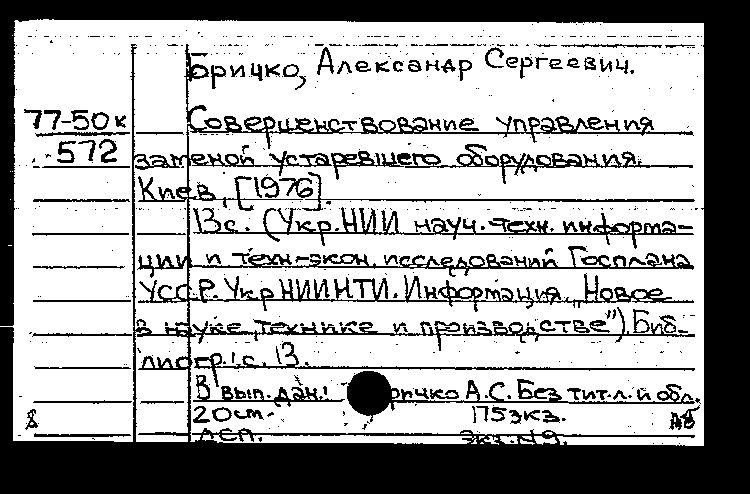 Бричко, Александр Сергеевич.
77-50к Совершенствование управления
572 заменой устаревшего оборудования.
Киев, [1976].
13с. (Укр.НИИ науч.-техн. информа-
ции и техн-экон. исследований Госплана
УССР. УкрНИИНТИ. Информация „Новое
в науке, технике и производстве"). Биб-
лиогр.: с. 13.
В вып. дан.: ричко А.С. Без тит.л. и обл.
20см. 175экз.
ДЕП. экз. N9.